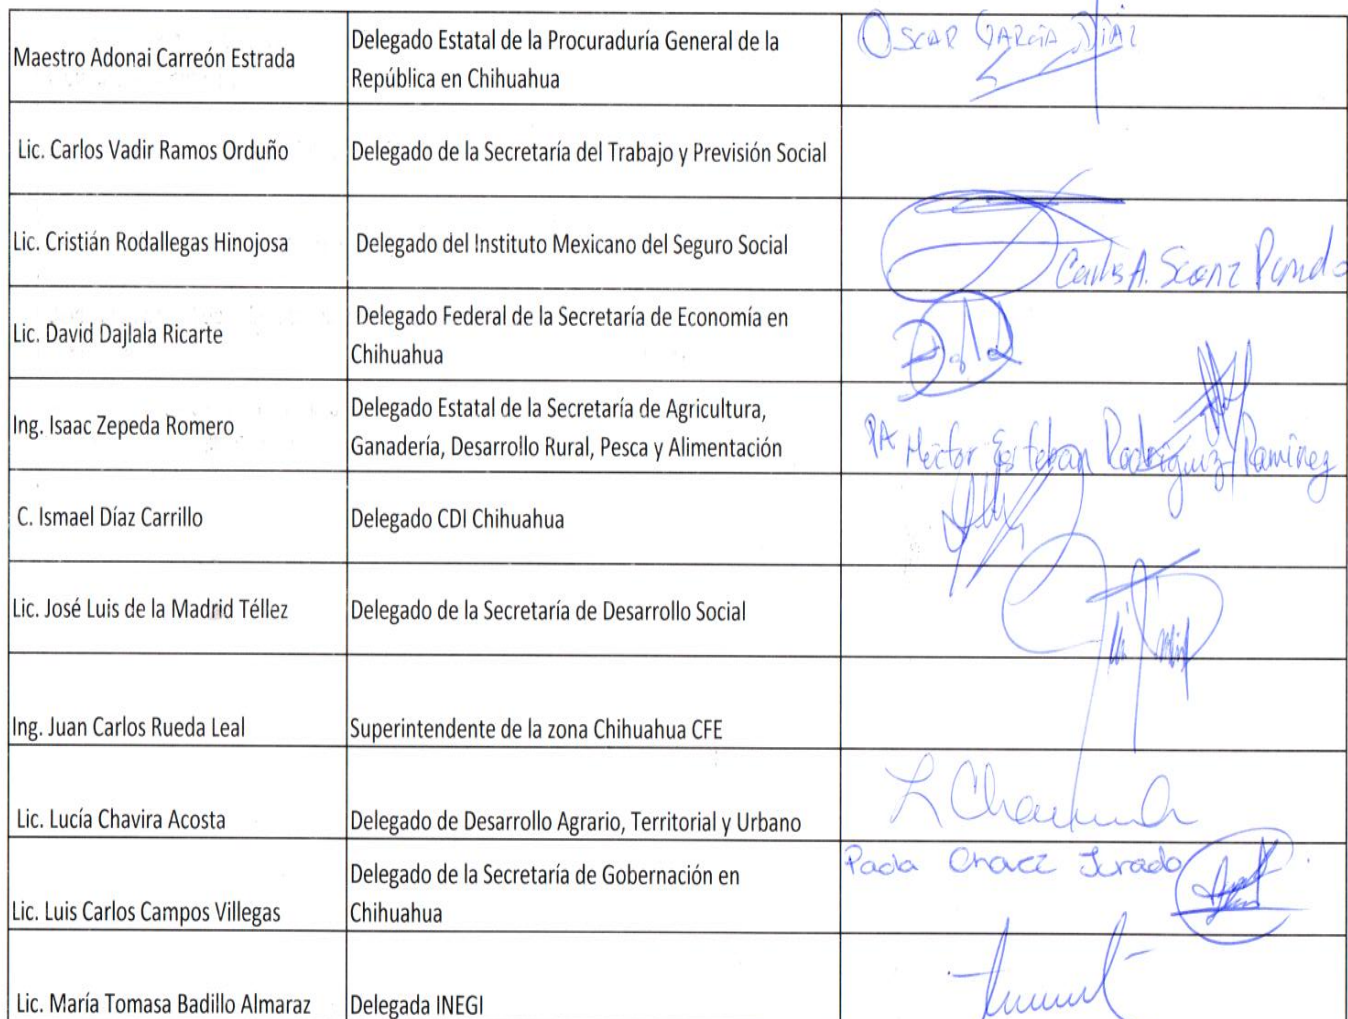 Maestro Adonai Carreón Estrada
Delegado Estatal de la Procuraduría General de la
República en Chihuahua
Oscar García Díaz
Lic. Carlos Vadir Ramos Orduño
Delegado de la Secretaría del Trabajo y Previsión Social
Lic. Cristián Rodallegas Hinojosa
Delegado del Instituto Mexicano del Seguro Social
Carlos A. Saenz Pando
Lic. David Dajlala Ricarte
Delegado Federal de la Secretaría de Economía en
Chihuahua
Ing. Isaac Zepeda Romero
Delegado Estatal de la Secretaría de Agricultura,
Ganadería, Desarrollo Rural, Pesca y Alimentación
PA Hector Esteban Rodriguez Ramirez
C. Ismael Díaz Carrillo
Delegado CDI Chihuahua
Lic. José Luis de la Madrid Téllez
Delegado de la Secretaría de Desarrollo Social
Ing. Juan Carlos Rueda Leal
Superintendente de la zona Chihuahua CFE
Lic. Lucía Chavira Acosta
Delegado de Desarrollo Agrario, Territorial y Urbano
Lic. Luis Carlos Campos Villegas
Delegado de la Secretaría de Gobernación en
Chihuahua
Paola Chavez Jurado
Lic. María Tomasa Badillo Almaraz
Delegada INEGI